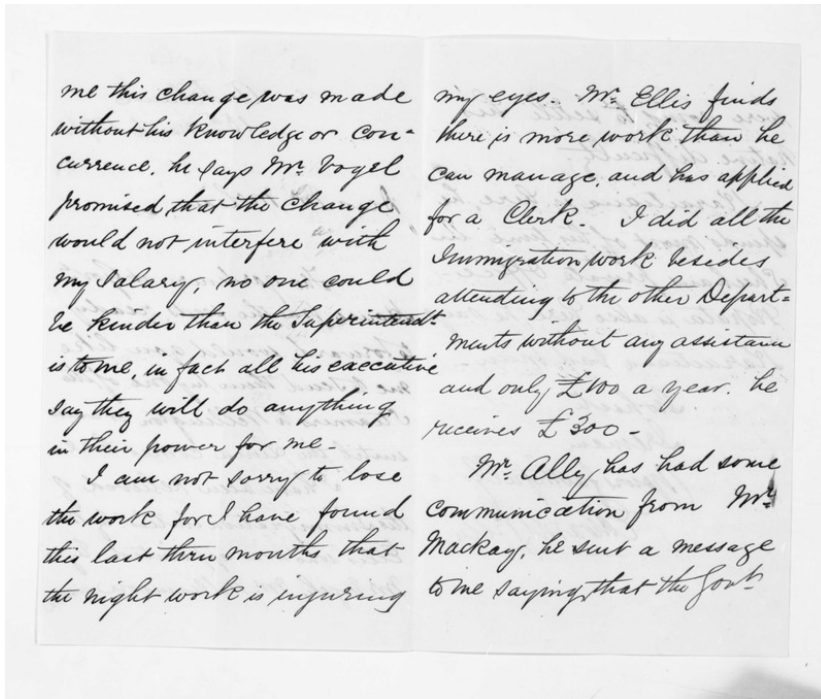 me this change was made
without his knowledge or con-
currence. he says Mr. Vogel
promised that the change
would not interfere with
my salary, no one could
be kinder than the Superintendt.
is to me, in fact all his executive
say they will do anything
in their power for me-
I am not sorry to lose
the work for I have found
this last three months that
the night work is injuring
my eyes. Mr. Ellis finds
there is more work than he
can manage, and has applied
for a Clerk. I did all the
Immigration work besides
attending to the other Depart=
ments without any assistance
and only £100 a year. he
receives £300-
Mr. Ally has had some
communication from Mr.
Mackay, he sent a message
to me saying that the Govt.